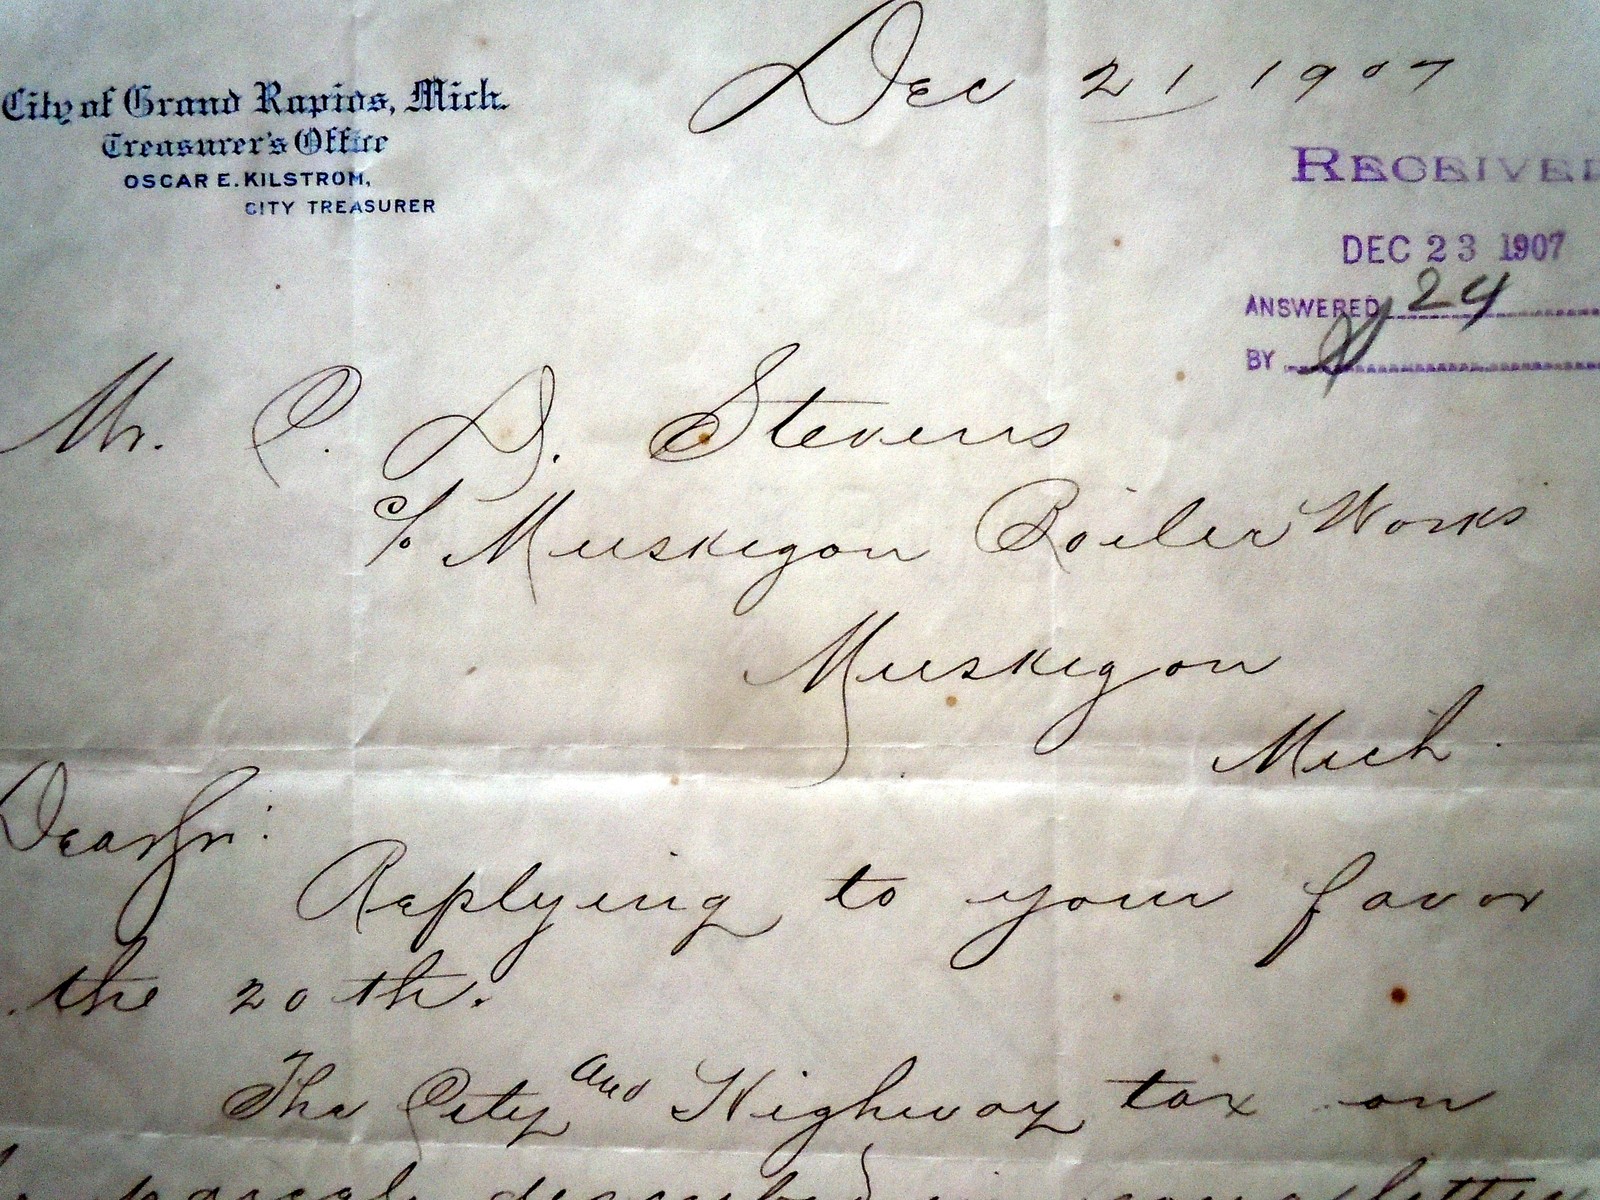 City of Grand Rapids, Mich.
Treasurer's Office
OSCAR E. KILSTROM,
CITY TREASURER
Dec 21 1907
RECEIVED
DEC 23 1907
ANSWERED 24
BY
Mr. C. D. Stevens
c/o Muskegon Boiler Works
Muskegon
Mich.
Dear Sir:
Replying to your favor
the 20th.
The City and Highway tax on
parcel described in your letter